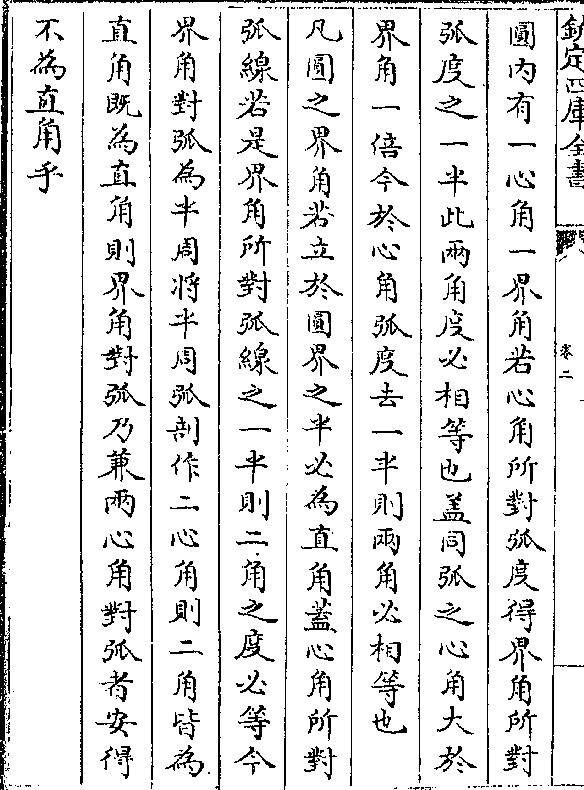 欽定四庫全書
卷二
圓内有一心角一界角若心角所對弧度得界角所對
弧度之一半此兩角度必相等也蓋同弧之心角大於
界角一倍今於心角弧度去一半則兩角必相等也
凡圓之界角若立於圓界之半必為直角蓋心角所對
弧線若是界角所對弧線之一半則二角之度必等今
界角對弧為半周將半周弧剖作二心角則二角皆為
直角既為直角則界角對弧乃兼兩心角對弧者安得
不為直角乎